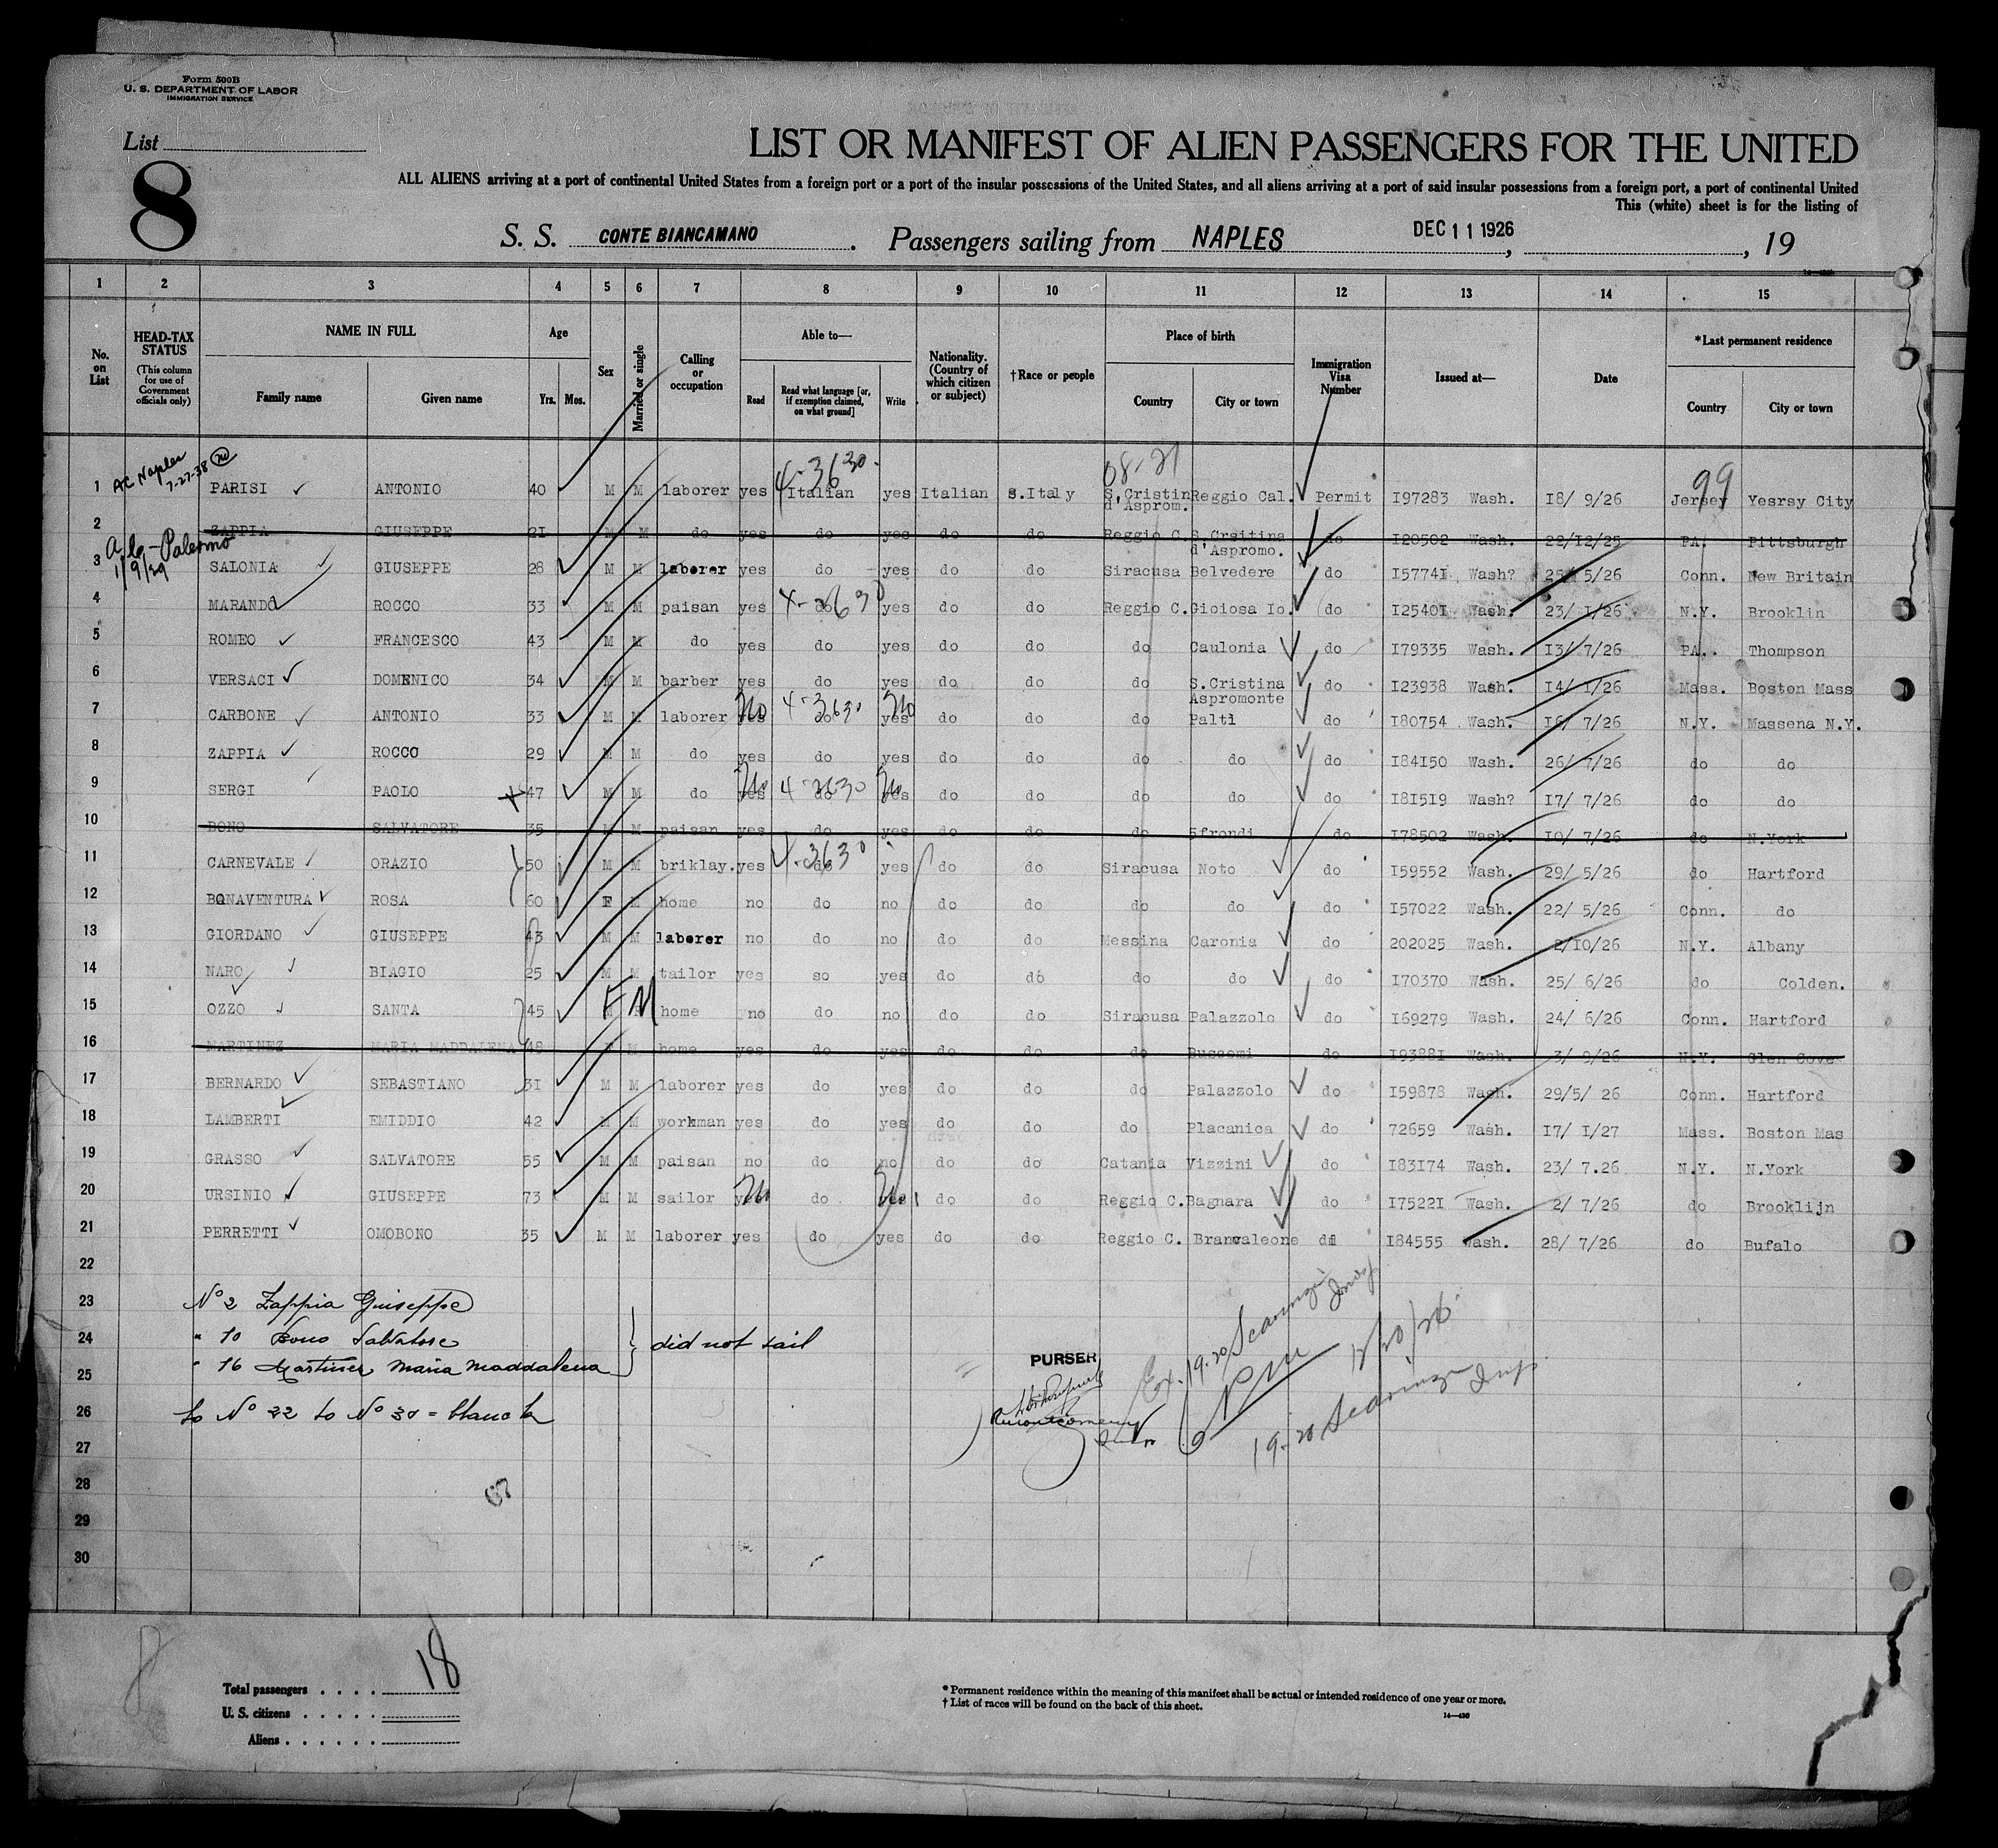 Form 500B
U. S. DEPARTMENT OF LABOR
IMMIGRATION SERVICE
List
8
LIST OR MANIFEST OF ALIEN PASSENGERS FOR THE UNITED
ALL ALIENS arriving at a port of continental United States from a foreign port or a port of the insular possessions of the United States, and all aliens arriving at a port of said insular possessions from a foreign port, a port of continental United
This (white) sheet is for the listing of
S. S. CONTE BIANCAMANO . Passengers sailing from NAPLES , DEC 11 1926 , 19
1 2 3 4 5 6 7 8 9 10 11 12 13 14 15
No. on List
HEAD-TAX STATUS
(This column for use of Government officials only)
NAME IN FULL
Family name Given name
Age
Yrs. Mos.
Sex
Married or single
Calling or occupation
Able to—
Read
Read what language [or, if exemption claimed, on what ground]
Write
Nationality. (Country of which citizen or subject)
†Race or people
Place of birth
Country City or town
Immigration Visa Number
Issued at—
Date
*Last permanent residence
Country City or town
AC Naples 7-27-38
4-3630 08-21 99
1 PARISI ANTONIO 40 M M laborer yes Italian yes Italian S.Italy S.Cristin d'Asprom. Reggio Cal. Permit I97283 Wash. I8/ 9/26 Jersey Yesrsy City
2 ZAPPIA GIUSEPPE 2I M M do yes do yes do do Reggio C. S.Crsitina d'Aspromo. do I20502 Wash. 22/I2/25 PA. Pittsburgh
Palermo 1/9/29
3 SALONIA GIUSEPPE 28 M M laborer yes do yes do do Siracusa Belvedere do I5774I Wash? 25/ 5/26 Conn. New Britain
4 MARANDO ROCCO 33 M M paisan yes do 4-3630 yes do do Reggio C. Gioiosa Io. do I2540I Wash. 23/ I/26 N.Y. Brooklin
5 ROMEO FRANCESCO 43 M M do yes do yes do do do Caulonia do I79335 Wash. I3/ 7/26 PA. Thompson
6 VERSACI DOMENICO 34 M M barber yes do yes do do do S.Cristina Aspromonte do I23938 Wash. I4/ I/26 Mass. Boston Mass
7 CARBONE ANTONIO 33 M M laborer yes No do 4-3630 yes No do do do Palti do I80754 Wash. I6/ 7/26 N.Y. Massena N.Y.
8 ZAPPIA ROCCO 29 M M do yes do yes do do do do do I84I50 Wash. 26/ 7/26 do do
9 SERGI PAOLO 47 M M do yes No do 4-3630 yes No do do do do do I8I5I9 Wash? I7/ 7/26 do do
10 BONO SALVATORE 35 M M paisan yes do yes do do do Sfrondi do I78502 Wash. I0/ 7/26 do N.York
11 CARNEVALE ORAZIO 50 M M briklay. yes do 4-3630 yes do do Siracusa Noto do I59552 Wash. 29/ 5/26 do Hartford
12 BONAVENTURA ROSA 60 F M home no do no do do do do do I57022 Wash. 22/ 5/26 Conn. do
13 GIORDANO GIUSEPPE 43 M M laborer no do no do do Messina Caronia do 202025 Wash. 2/I0/26 N.Y. Albany
14 NARO BIAGIO 25 M M tailor yes so yes do do do do do I70370 Wash. 25/ 6/26 do Colden.
15 OZZO SANTA 45 F M home no do no do do Siracusa Palazzolo do I69279 Wash. 24/ 6/26 Conn. Hartford
16 MARTINEZ MARIA MADDALENA 48 M home yes do yes do do do Buscemi do I9388I Wash. 3/ 9/26 N.Y. Glen Cove
17 BERNARDO SEBASTIANO 3I M M laborer yes do yes do do do Palazzolo do I59878 Wash. 29/5/ 26 Conn. Hartford
18 LAMBERTI EMIDDIO 42 M M workman yes do yes do do do Placanica do 72659 Wash. I7/ I/27 Mass. Boston Mas
19 GRASSO SALVATORE 55 M M paisan no do no do do Catania Vizzini do I83I74 Wash. 23/ 7.26 N.Y. N.York
20 URSINIO GIUSEPPE 73 M M sailor yes No do yes No do do Reggio C. Bagnara do I7522I Wash. 2/ 7/26 do Brooklijn
21 PERRETTI OMOBONO 35 M M laborer yes do yes do do Reggio C. Brancaleone do I84555 Wash. 28/ 7/26 do Bufalo
22
23 No 2 Zappia Guiseppe
24 " 10 Bono Salvatore } did not sail
25 " 16 Martinez Maria Maddalena
26 to No 22 to No 30 = blanck
27
28
29
30
PURSER
Ex. 19-20 Scaringi Insp
12/20/26
19-20 Scaringi Insp.
67
8
Total passengers . . . . 18
U. S. citizens . . . . .
Aliens . . . . . .
* Permanent residence within the meaning of this manifest shall be actual or intended residence of one year or more.
† List of races will be found on the back of this sheet.
14—430